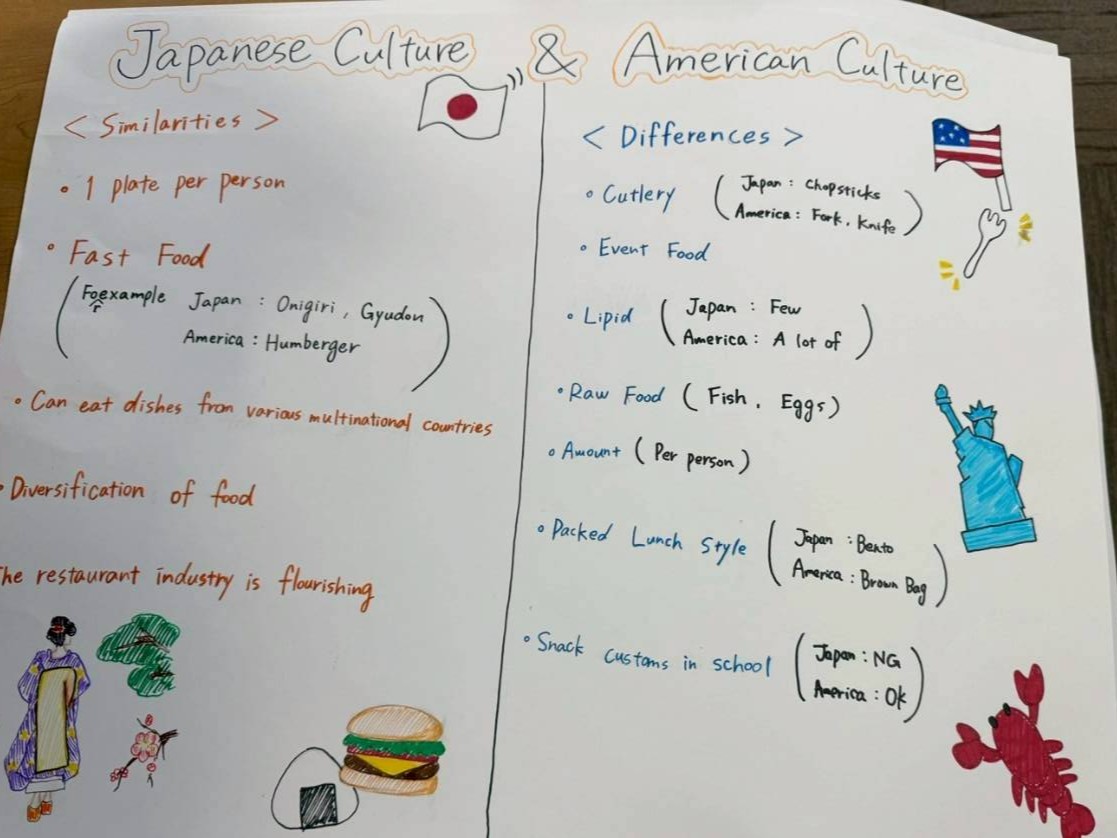 Japanese Culture & American Culture
< Similarities >
• 1 plate per person
• Fast Food
(Forexample Japan : Onigiri, Gyudon
America : Humberger)
• Can eat dishes from various multinational countries
• Diversification of food
The restaurant industry is flourishing
< Differences >
• Cutlery (Japan : Chopsticks
America : Fork, Knife)
• Event Food
• Lipid (Japan : Few
America : A lot of)
• Raw Food (Fish, Eggs)
• Amount (Per person)
• Packed Lunch Style (Japan : Bento
America : Brown Bag)
• Snack customs in school (Japan : NG
America : Ok)